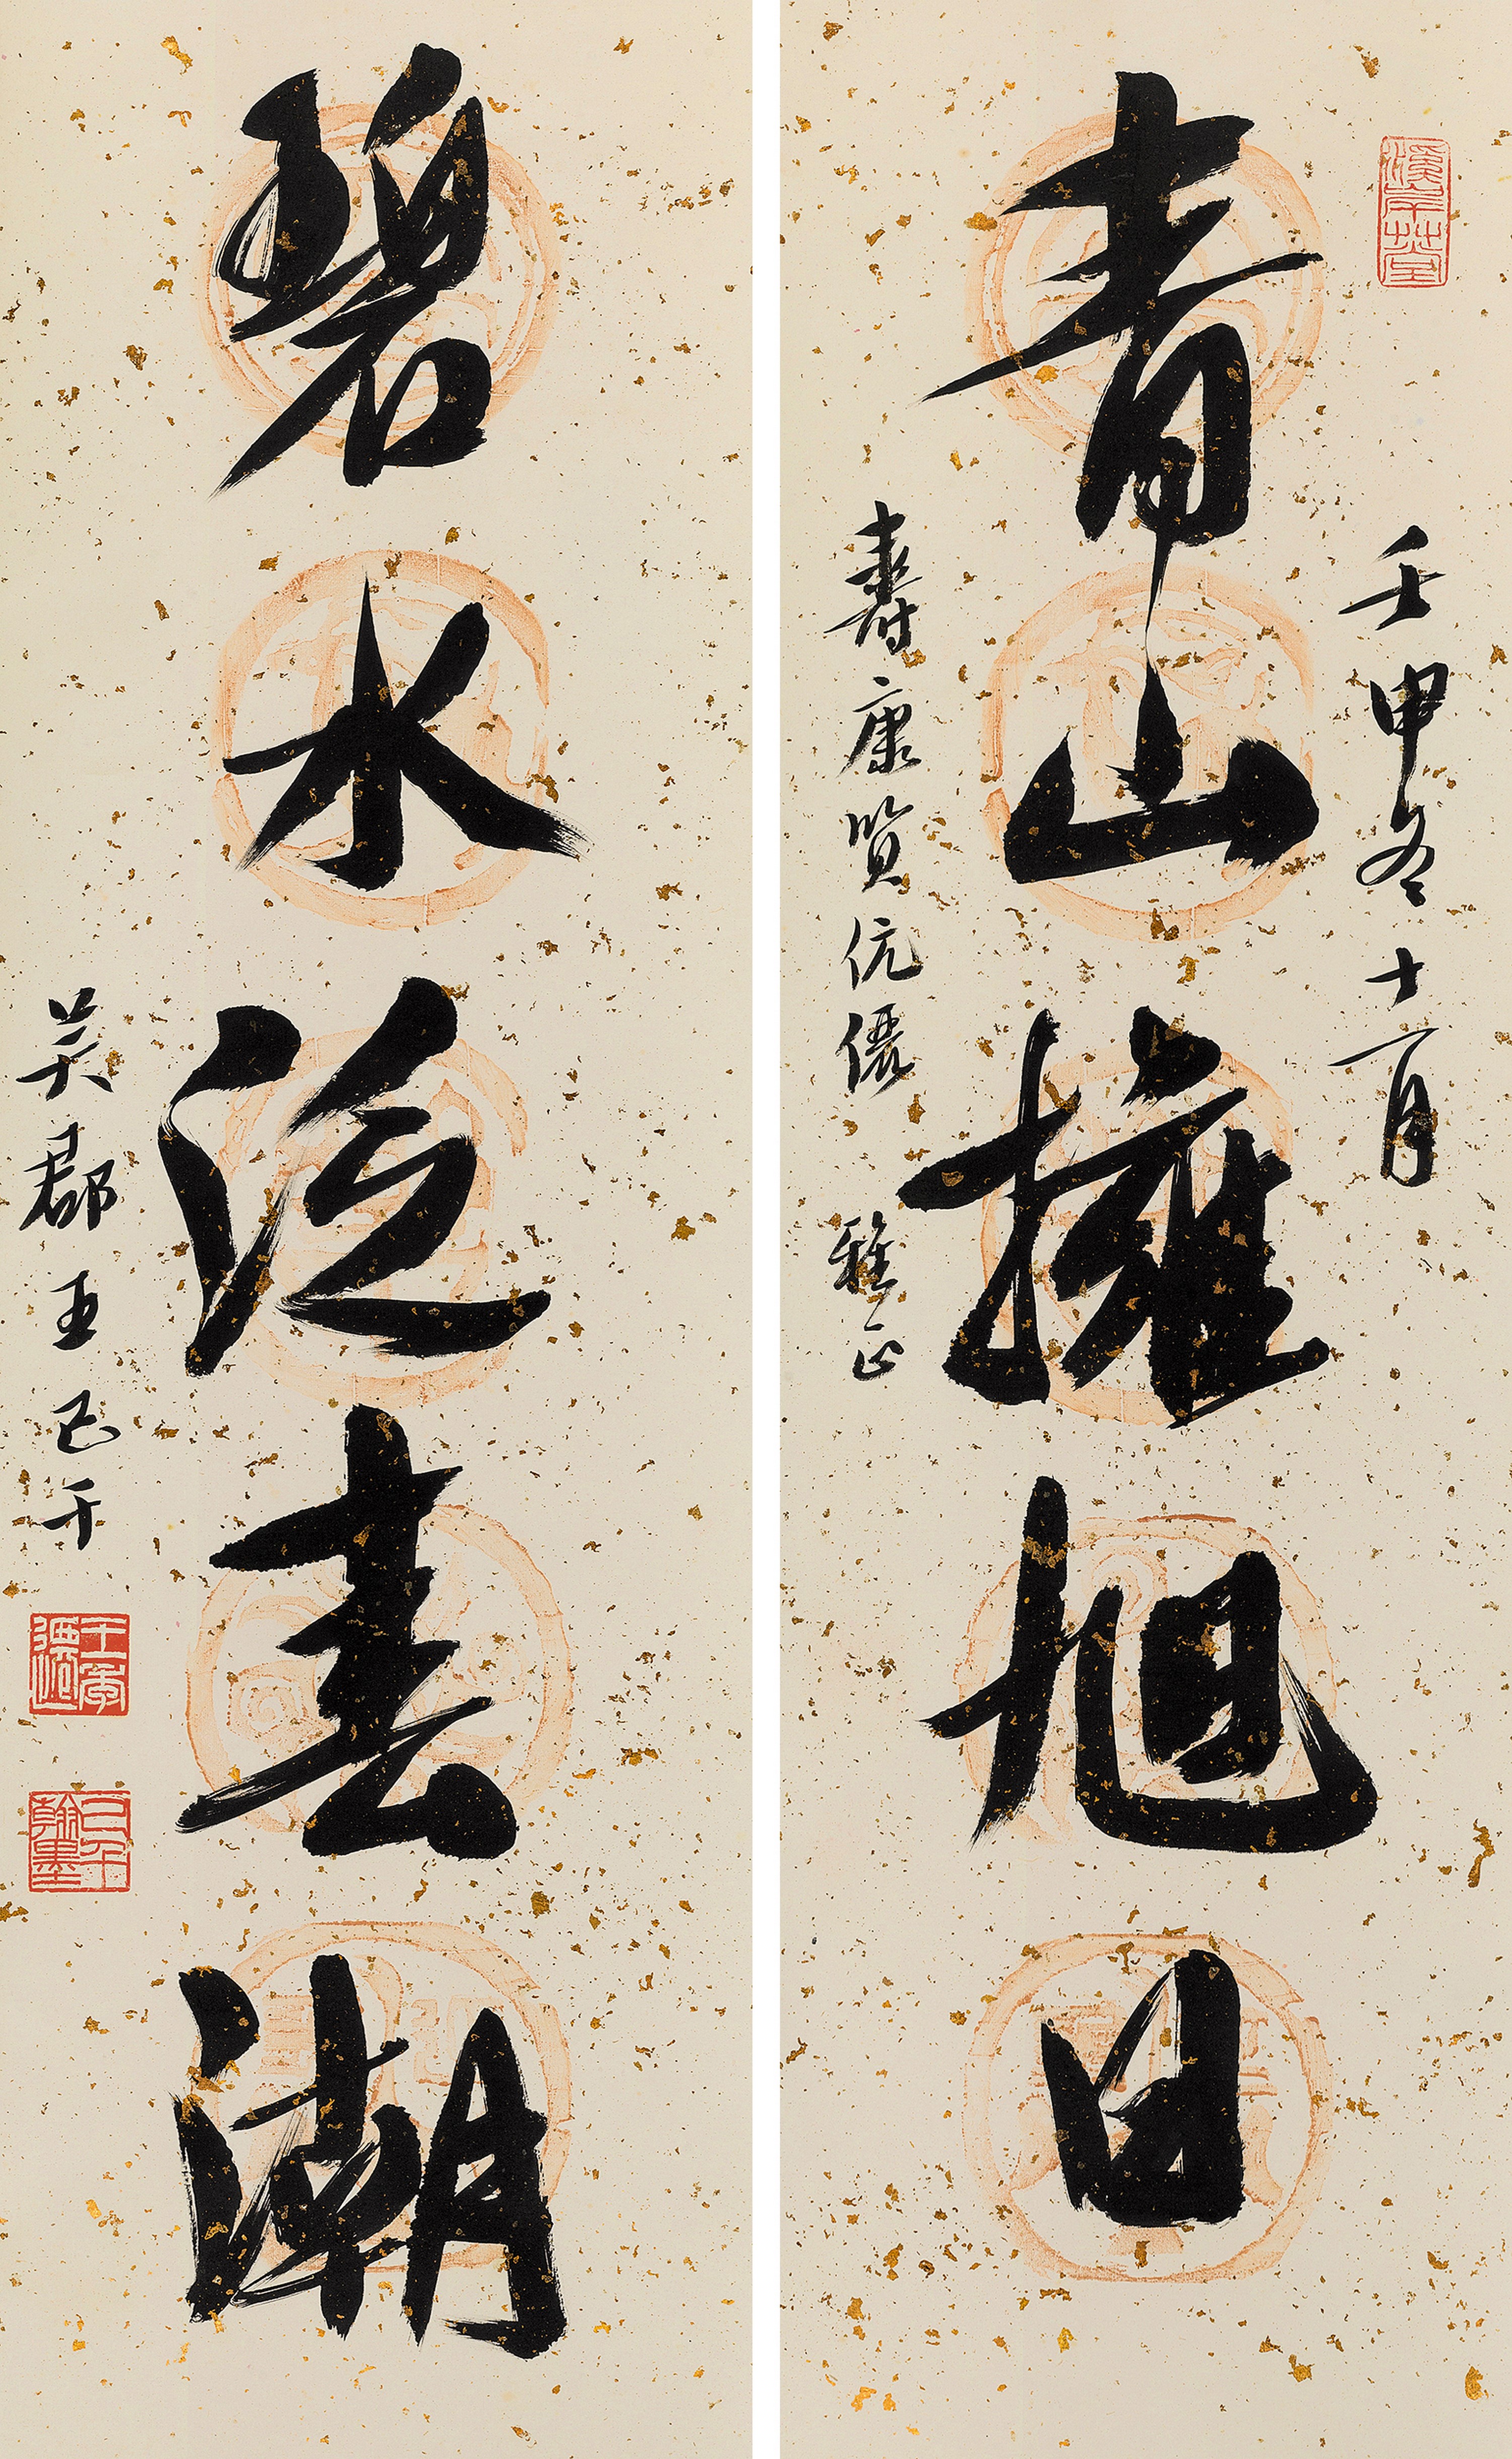 溪岸草堂
壬申冬十一月
青山擁旭日
壽康賢伉儷 雅正
碧水泛春潮
吳郡王己千
王季遷印
己千翰墨